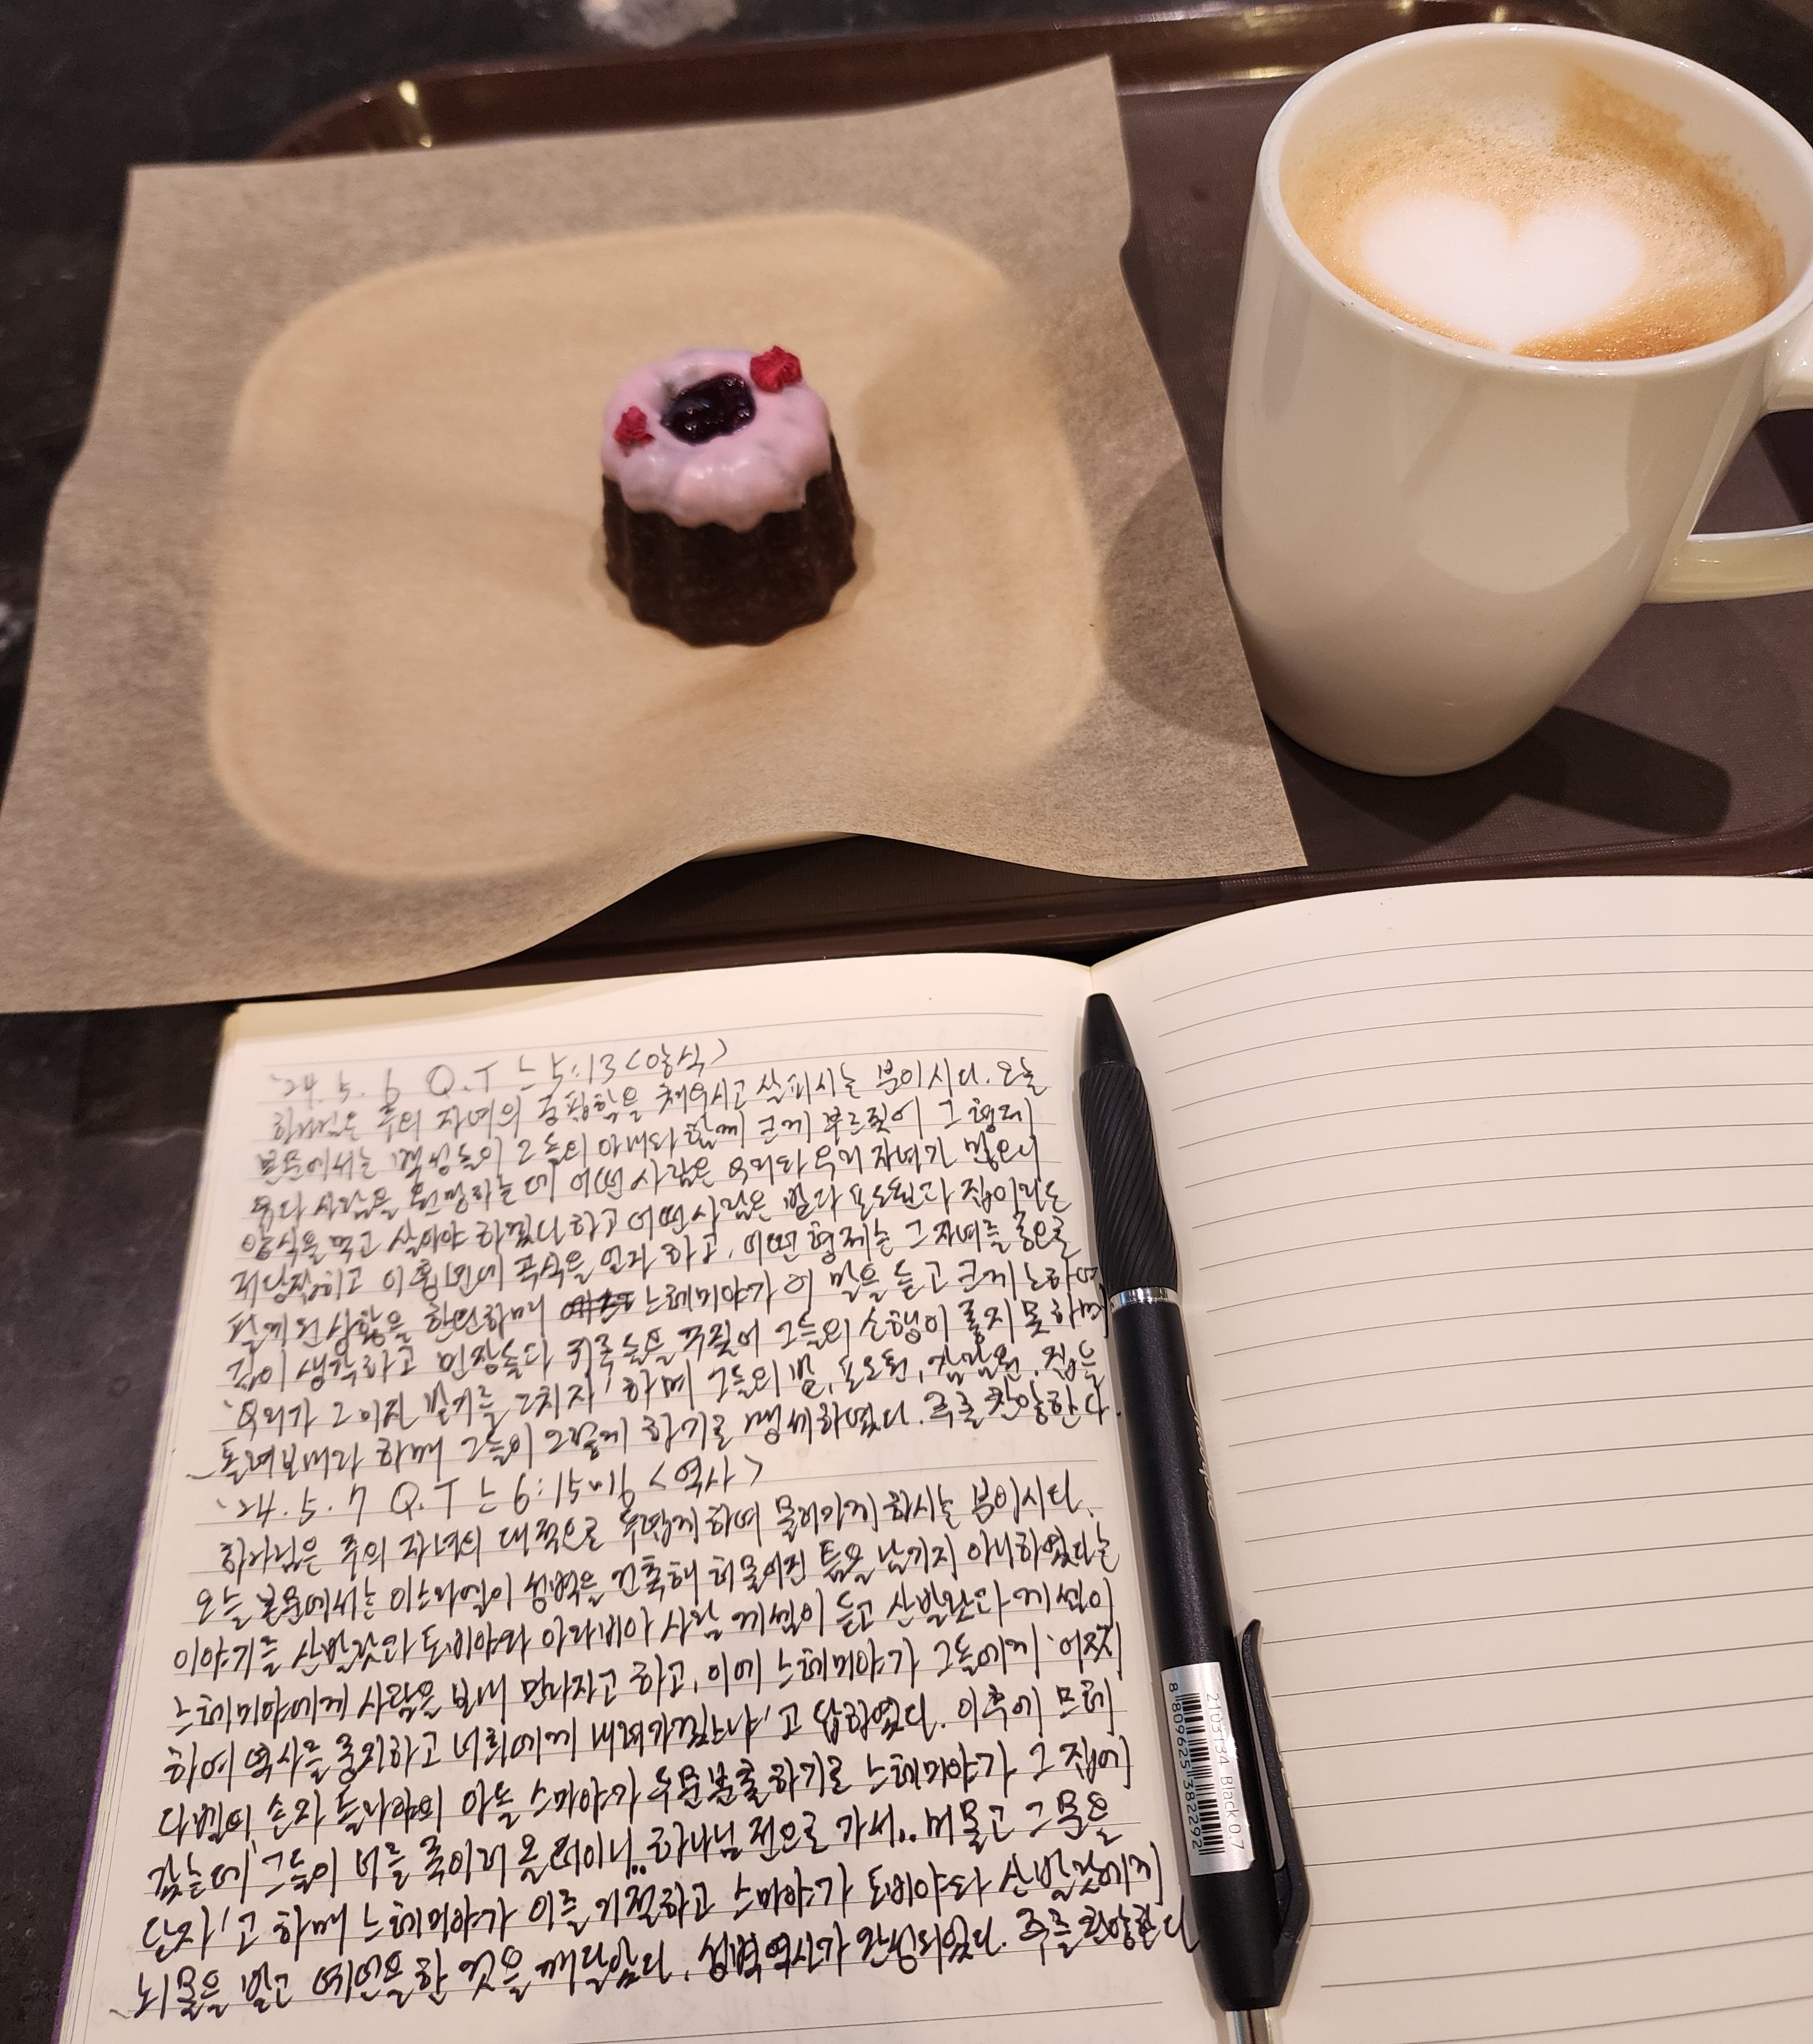 '24. 5. 6 Q.T 느 5:13 <양식>
하나님은 주의 자녀의 궁핍함을 채우시고 살피시는 분이시다. 오늘
본문에서는 백성들이 그들의 아내와 함께 크게 부르짖어 그 형제
유다 사람을 원망하는데 어떤 사람은 우리와 우리 자녀가 많으니
양식을 먹고 살아야 하겠다 하고 어떤 사람은 밭과 포도원과 집이라도
저당잡히고 이 흉년에 곡식을 얻자 하고, 어떤 형제는 그 자녀를 종으로
팔게 된 상황을 한탄하매 느헤미야가 이 말을 듣고 크게 노하여
깊이 생각하고 민장들과 귀족들을 꾸짖어 그들의 소행이 좋지 못하며
'우리가 그 이자 받기를 그치자' 하며 그들의 밭, 포도원, 감람원, 집을
돌려보내라 하매 그들이 그렇게 하기로 맹세하였다. 주를 찬양한다.
'24. 5. 7 Q.T 느 6:15~16 <역사>
하나님은 주의 자녀의 대적으로 두렵게 하여 물러가게 하시는 분이시다.
오늘 본문에서는 이스라엘이 성벽을 건축해 허물어진 틈을 남기지 아니하였다는
이야기를 산발랏과 도비야와 아라비아 사람 게셈이 듣고 산발랏과 게셈이
느헤미야에게 사람을 보내 만나자고 하고, 이에 느헤미야가 그들에게 '어찌
하여 역사를 중지하고 너희에게 내려가겠느냐'고 답하였다. 이후에 므헤
다벨의 손자 들라야의 아들 스마야가 두문불출하기로 느헤미야가 그 집에
갔는데 '그들이 너를 죽이러 올 터이니.. 하나님 전으로 가서.. 머물고 그 문을
닫자'고 하매 느헤미야가 이를 거절하고 스마야가 도비야와 산발랏에게
뇌물을 받고 예언을 한 것을 깨달았다. 성벽 역사가 완성되었다. 주를 찬양한다
2103134 Black 0.7
8 809625 382292